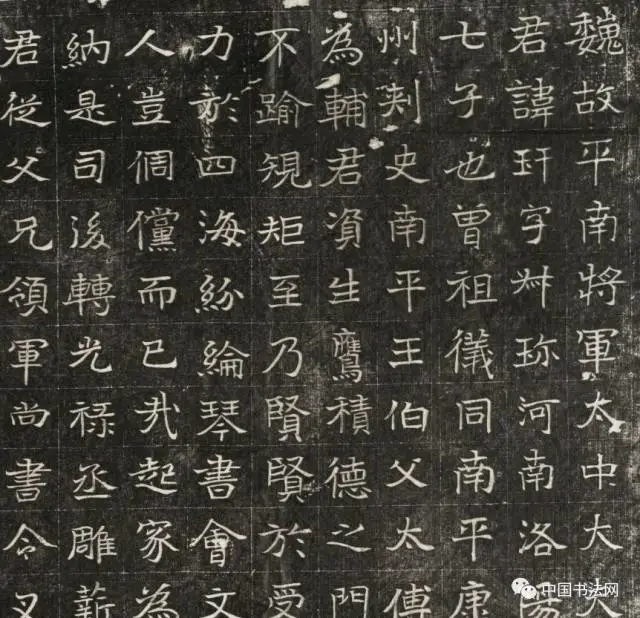 魏故平南將軍太中大夫
君諱玕字叔珎河南洛陽
七子也曾祖儀同南平康
州刾史南平王伯父太傅
為輔君資生鷹積德之門
不踰規矩至乃賢賢於受
力於四海紛綸琴書會文
人豈倜儻而已哉起家為
納是司後轉光祿丞雕薪
君從父兄領軍尚書令叉
中国书法网